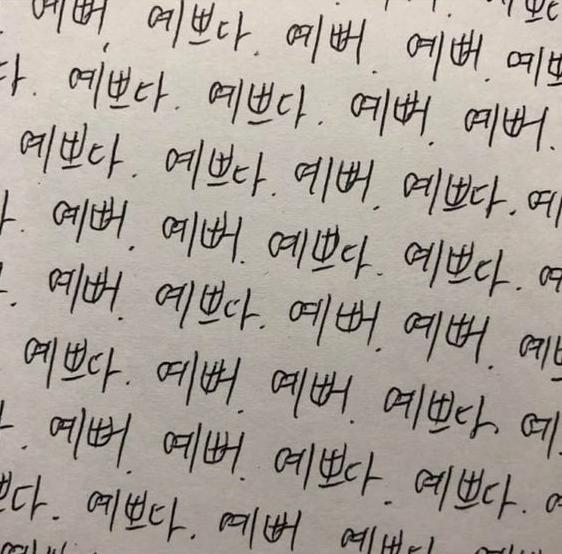 예뻐, 예쁘다. 예뻐. 예뻐.
다. 예쁘다. 예쁘다. 예뻐. 예뻐.
예쁘다. 예쁘다. 예뻐. 예쁘다. 예
예뻐. 예뻐. 예쁘다. 예쁘다.
예뻐. 예쁘다. 예뻐. 예뻐.
예쁘다. 예뻐. 예뻐. 예쁘다. 예
예뻐. 예뻐. 예쁘다. 예쁘다.
쁘다. 예쁘다. 예뻐 예쁘다